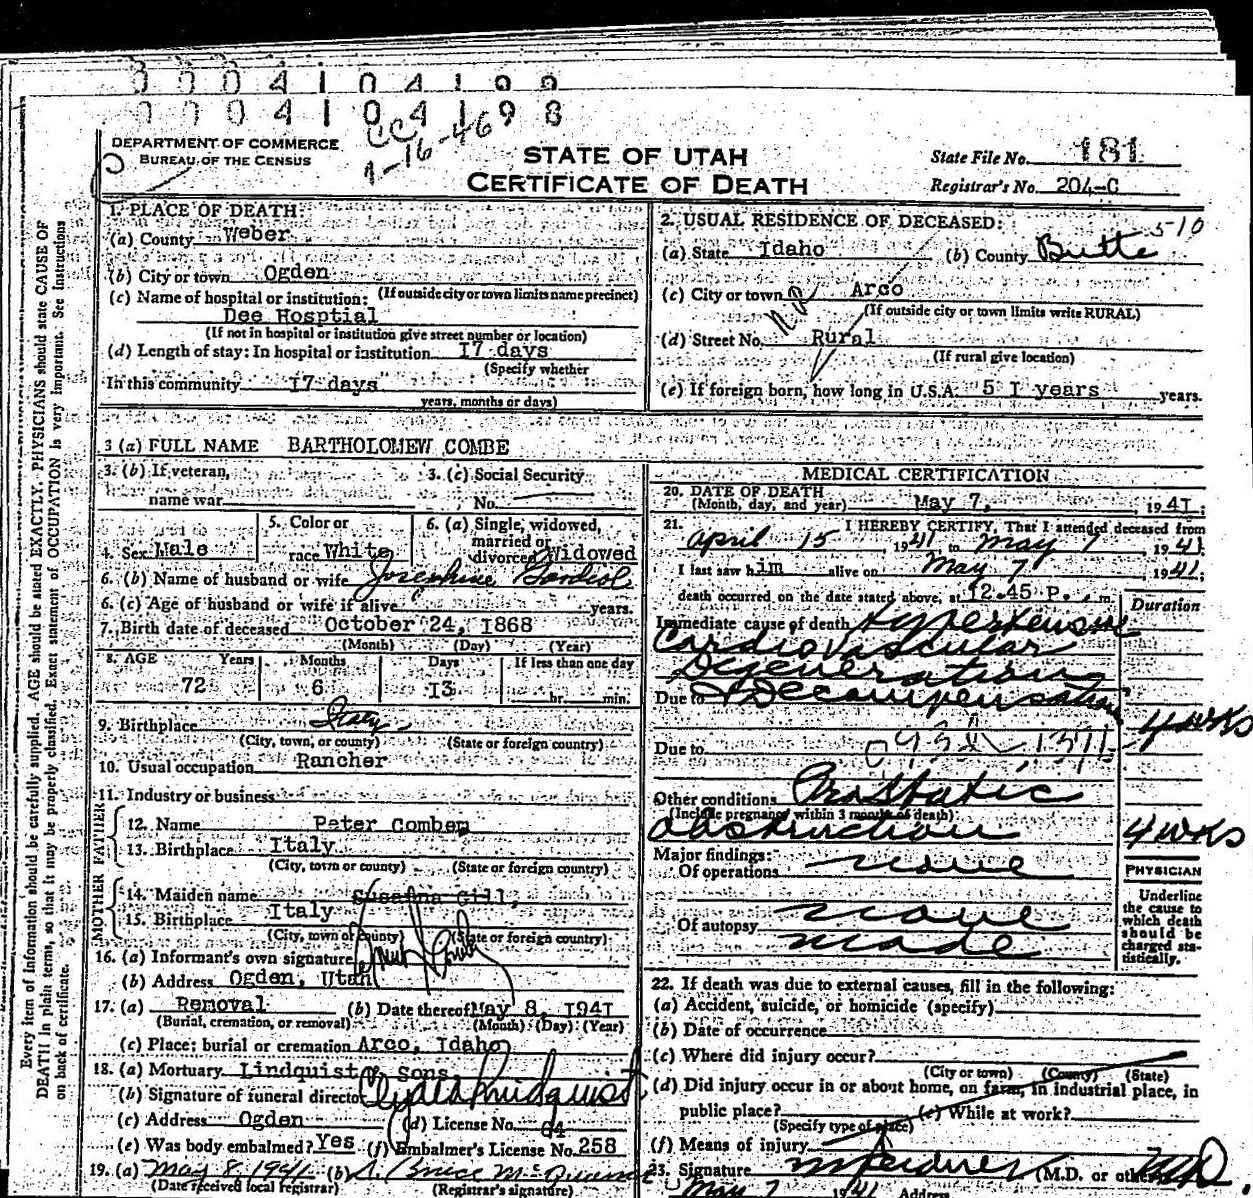 0004104199
0004104198
CC
1-16-46
DEPARTMENT OF COMMERCE
BUREAU OF THE CENSUS
STATE OF UTAH
CERTIFICATE OF DEATH
State File No. 181
Registrar's No. 204-C
Every item of information should be carefully supplied. AGE should be stated EXACTLY. PHYSICIANS should state CAUSE OF
DEATH in plain terms, so that it may be properly classified. Exact statement of OCCUPATION is very important. See Instructions
on back of certificate.
1. PLACE OF DEATH:
(a) County Weber
(b) City or town Ogden
(If outside city or town limits name precinct)
(c) Name of hospital or institution:
Dee Hosptial
(If not in hospital or institution give street number or location)
(d) Length of stay: In hospital or institution 17 days
(Specify whether
In this community 17 days
years, months or days)
2. USUAL RESIDENCE OF DECEASED: 510
(a) State Idaho (b) County Butte
(c) City or town Arco
(If outside city or town limits write RURAL)
(d) Street No. Rural
(If rural give location)
(e) If foreign born, how long in U.S.A. 51 years years.
3 (a) FULL NAME BARTHOLOMEW COMBE
3. (b) If veteran,
name war
3. (c) Social Security
No.
4. Sex Male
5. Color or
race White
6. (a) Single, widowed,
married or
divorced Widowed
6. (b) Name of husband or wife Josephine Gardiol
6. (c) Age of husband or wife if alive years.
7. Birth date of deceased October 24, 1868
(Month) (Day) (Year)
8. AGE Years Months Days If less than one day
72 6 13 hr. min.
9. Birthplace Italy
(City, town, or county) (State or foreign country)
10. Usual occupation Rancher
11. Industry or business
FATHER
12. Name Peter Comben
13. Birthplace Italy
(City, town or county) (State or foreign country)
MOTHER
14. Maiden name Susanna Gill,
15. Birthplace Italy
(City, town or county) (State or foreign country)
16. (a) Informant's own signature
(b) Address Ogden, Utah
17. (a) Removal (b) Date thereof May 8, 1941
(Burial, cremation, or removal) (Month) (Day) (Year)
(c) Place: burial or cremation Arco, Idaho
18. (a) Mortuary Lindquist & Sons
(b) Signature of funeral director Clyde Lindquist
(c) Address Ogden (d) License No. 64
(e) Was body embalmed? Yes (f) Embalmer's License No. 258
19. (a) May 8, 1941 (b)
(Date received local registrar) (Registrar's signature)
MEDICAL CERTIFICATION
20. DATE OF DEATH
(Month, day, and year) May 7, 1941
21. I HEREBY CERTIFY, That I attended deceased from
April 15, 1941 to May 7 1941
I last saw him alive on May 7, 1941;
death occurred on the date stated above, at 12.45 P. m.
Duration
Immediate cause of death Hypertensive
Cardiovascular
Degeneration
Due to & Decompensation
4 wks
Due to
Other conditions Prostatic
(Include pregnancy within 3 months of death)
obstruction 4 wks
Major findings:
Of operations none
Of autopsy none
made
PHYSICIAN
Underline
the cause to
which death
should be
charged sta-
tistically.
22. If death was due to external causes, fill in the following:
(a) Accident, suicide, or homicide (specify)
(b) Date of occurrence
(c) Where did injury occur?
(City or town) (County) (State)
(d) Did injury occur in or about home, on farm, in industrial place, in
public place? (e) While at work?
(Specify type of place)
(f) Means of injury
23. Signature (M.D. or other) MD
May 7 1941 Address